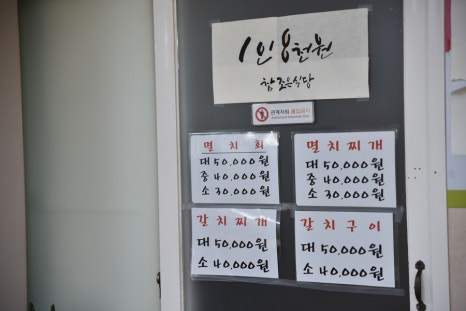 1인 8천원
참 조은식당
관계자외 출입금지
멸치회
대 50,000원
中 40,000원
소 30,000원
멸치찌개
대 50,000원
中 40,000원
소 30,000원
갈치찌개
대 50,000원
소 40,000원
갈치구이
대 50,000원
소 40,000원